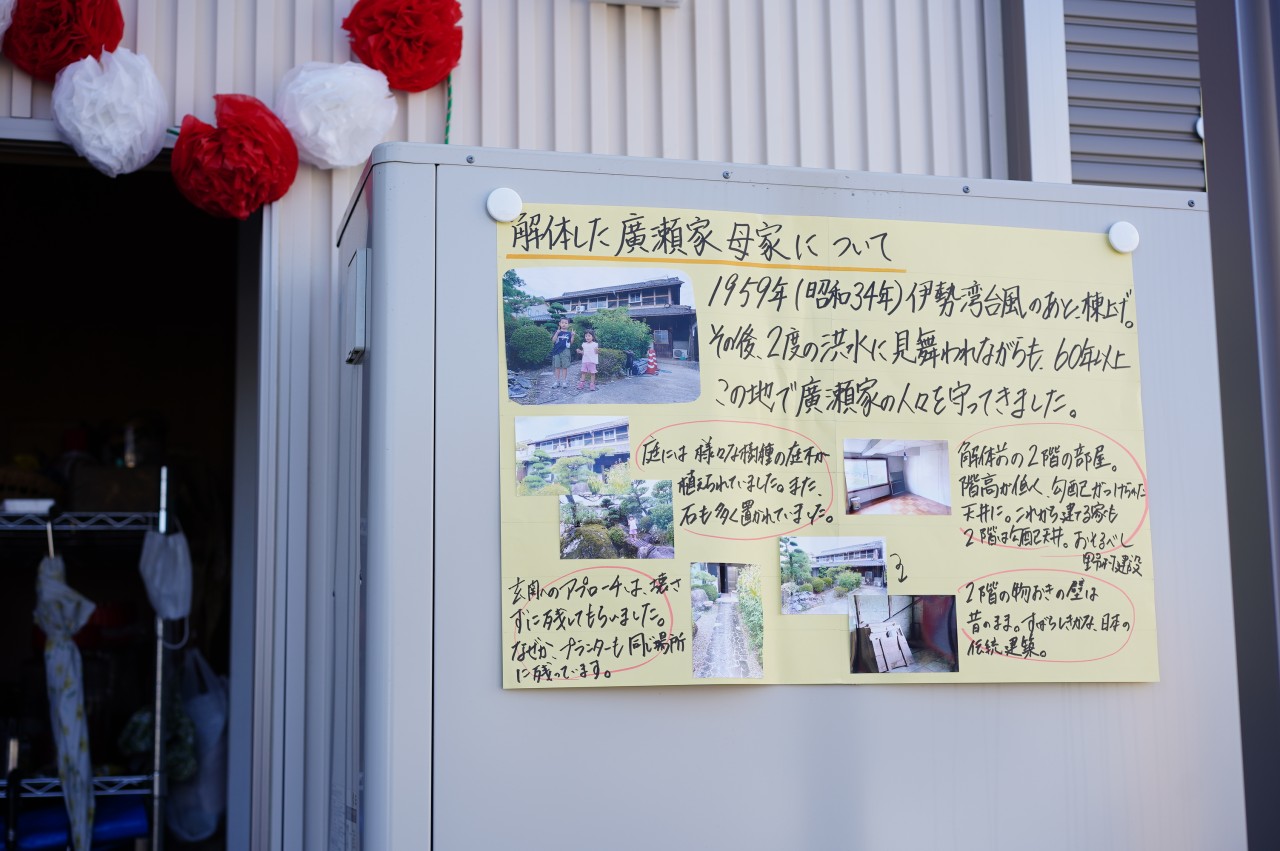 解体した廣瀬家母家について
1959年(昭和34年)伊勢湾台風のあと棟上げ。
その後、2度の洪水に見舞われながらも、60年以上
この地で廣瀬家の人々を守ってきました。
庭には様々な樹種の庭木が
植えられていました。また、
石も多く置かれていました。
解体前の2階の部屋。
階高が低く、勾配がつけられた
天井に。これから建てる家も
2階は勾配天井。おそるべし
建設
玄関へのアプローチは、壊さ
ずに残してもらいました。
なぜか プランターも同じ場所
に残っています。
2階の物おきの壁は
昔のまま。すばらしきかな、日本の
伝統建築。